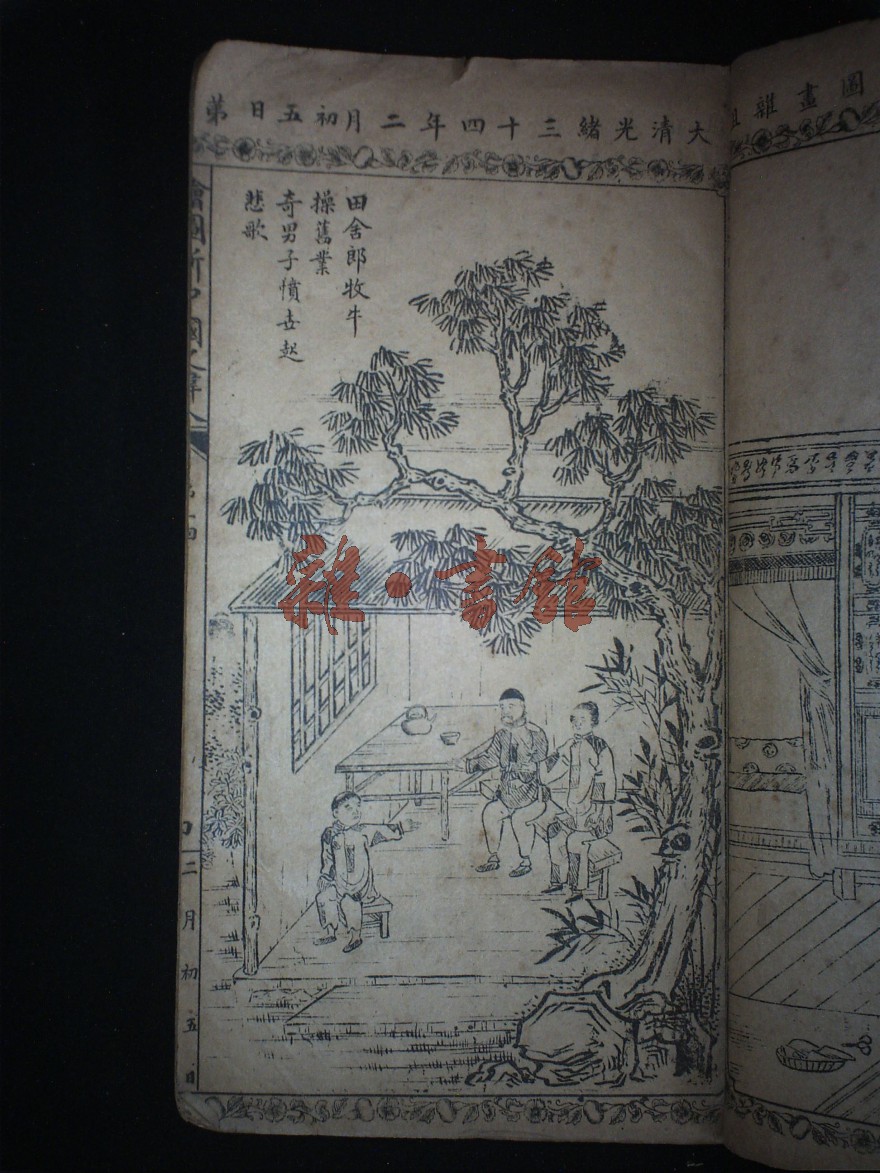 圖畫雜俎
大清光緒三十四年二月初五日第
田舍郎牧牛
操舊業
奇男子憤世起
悲歌
繪圖新中國之偉人
二月初五日
雜·書館